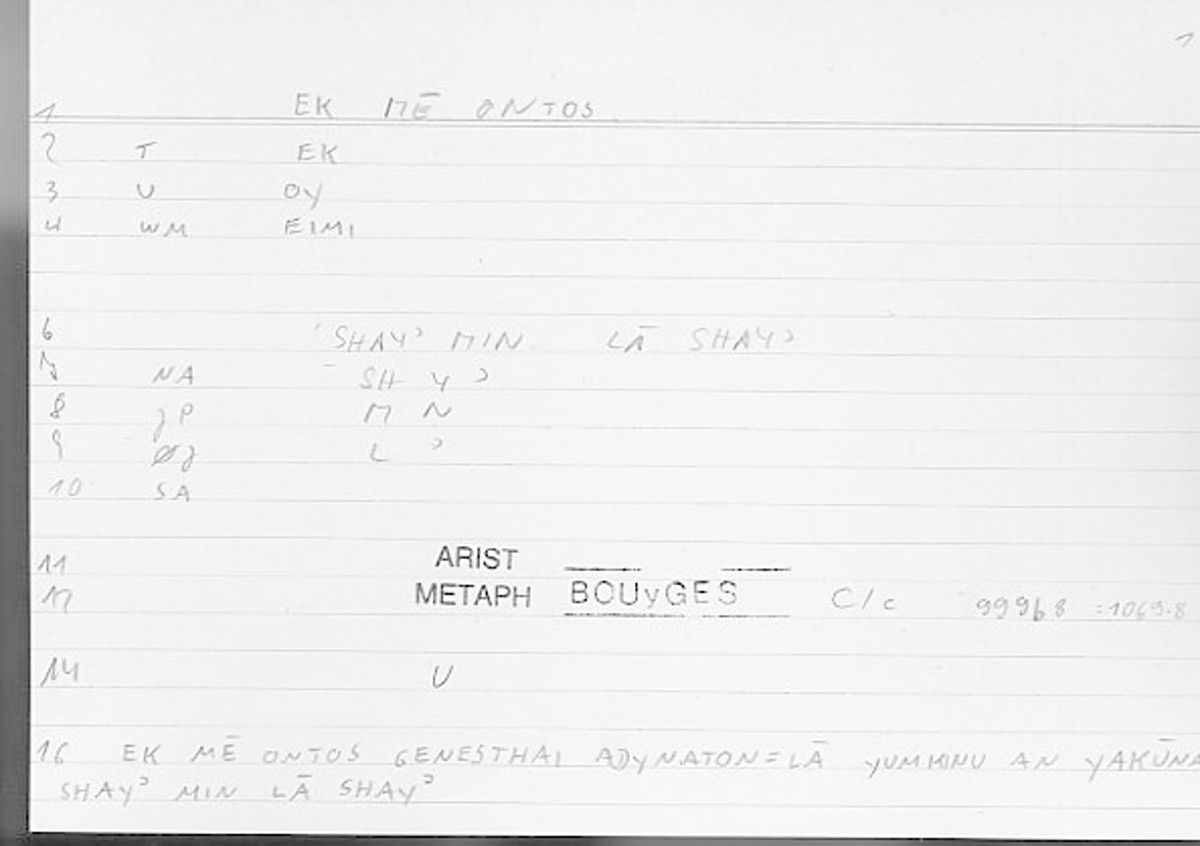 1
1 EK MĒ ONTOS
2 T EK
3 U OY
4 WM EIMI
6 SHAYʾ MIN LĀ SHAYʾ
7 NA SH Y ʾ
8 JP M N
9 ØJ L ʾ
10 SA
11 ARIST
12 METAPH BOUyGES C/c 99968 :1069.8
14 U
16 EK MĒ ONTOS GENESTHAI ADYNATON=LĀ YUMKINU AN YAKŪNA
SHAYʾ MIN LĀ SHAYʾ